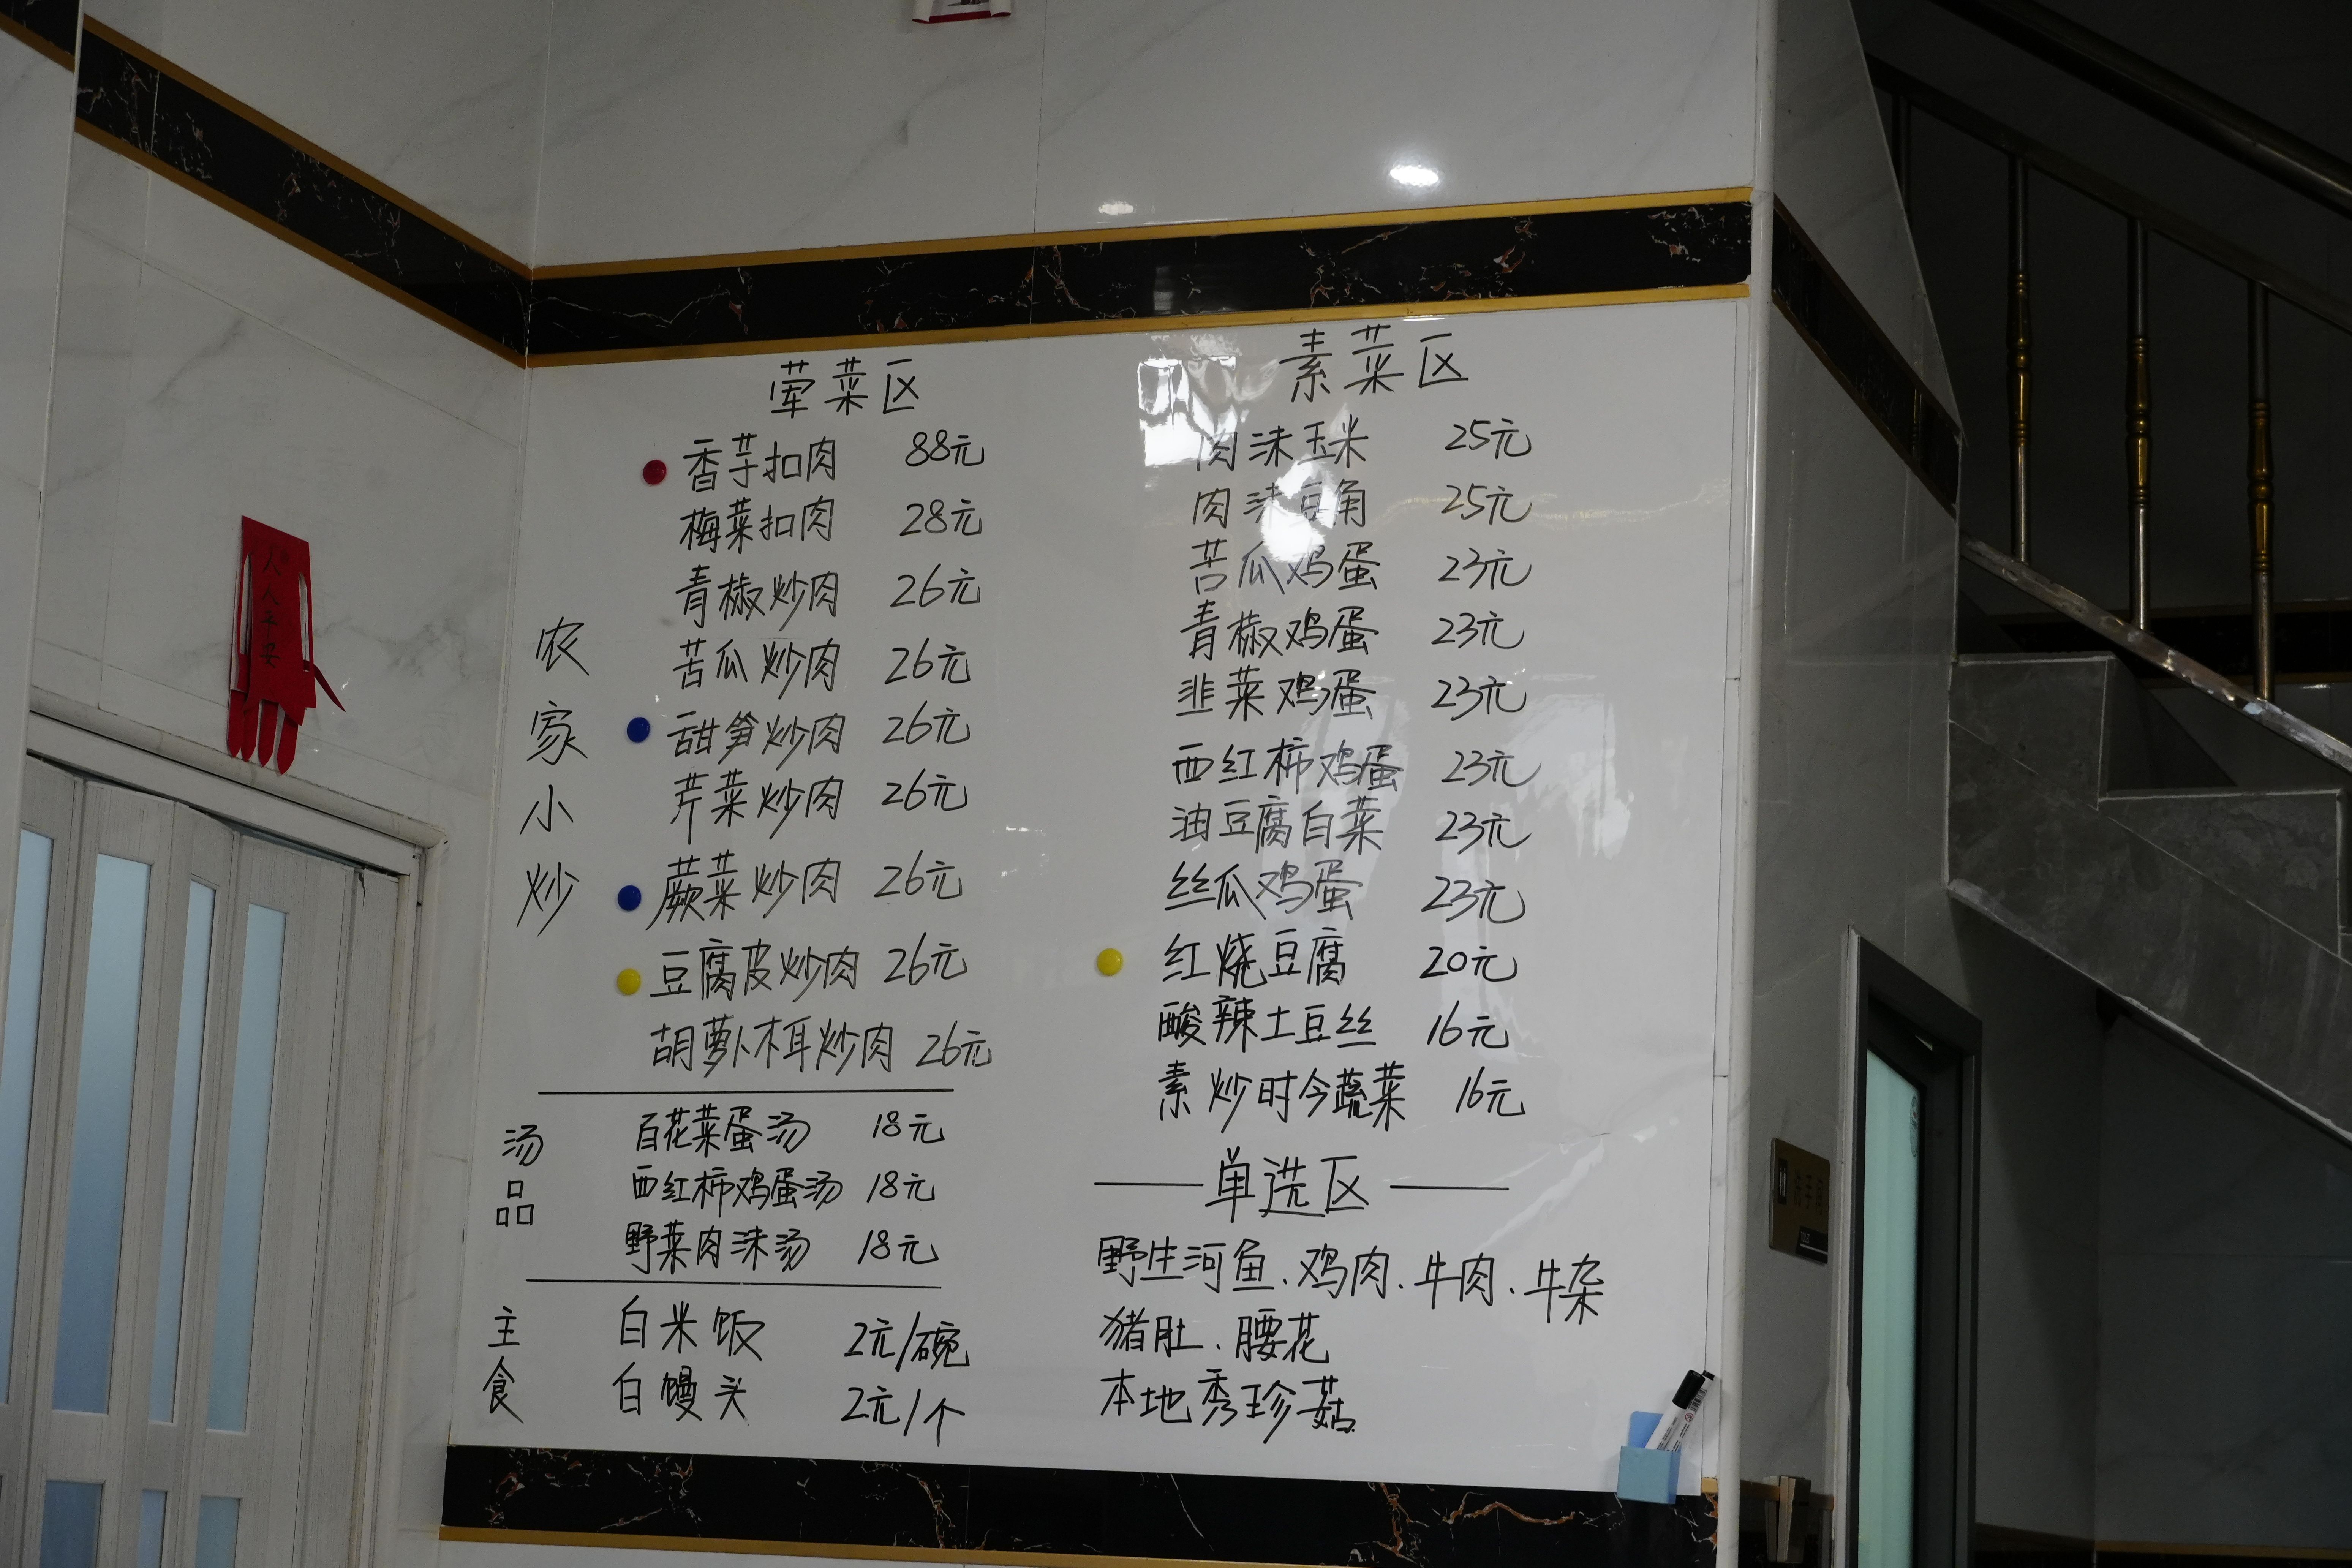 荤菜区
香芋扣肉 88元
梅菜扣肉 28元
青椒炒肉 26元
苦瓜炒肉 26元
甜笋炒肉 26元
芹菜炒肉 26元
蕨菜炒肉 26元
豆腐皮炒肉 26元
胡萝卜木耳炒肉 26元
农家小炒
汤品
百花菜蛋汤 18元
西红柿鸡蛋汤 18元
野菜肉沫汤 18元
主食
白米饭 2元/碗
白馒头 2元/个
素菜区
肉沫玉米 25元
肉沫豆角 25元
苦瓜鸡蛋 23元
青椒鸡蛋 23元
韭菜鸡蛋 23元
西红柿鸡蛋 23元
油豆腐白菜 23元
丝瓜鸡蛋 23元
红烧豆腐 20元
酸辣土豆丝 16元
素炒时今蔬菜 16元
单选区
野生河鱼、鸡肉、牛肉、牛杂
猪肚、腰花
本地秀珍菇
人人平安